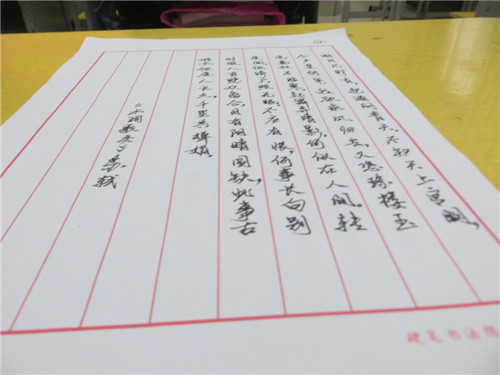 明月几时有,把酒问青天。不知天上宫阙,
今夕是何年。我欲乘风归去,又恐琼楼玉
宇高处不胜寒起舞弄清影,何似在人间。转
朱阁低绮户照无眠。不应有恨,何事长向别
时圆人有悲欢离合月有阴晴圆缺,此事古
难全但愿人长久,千里共婵娟。
《水调歌头》苏轼
硬笔书法